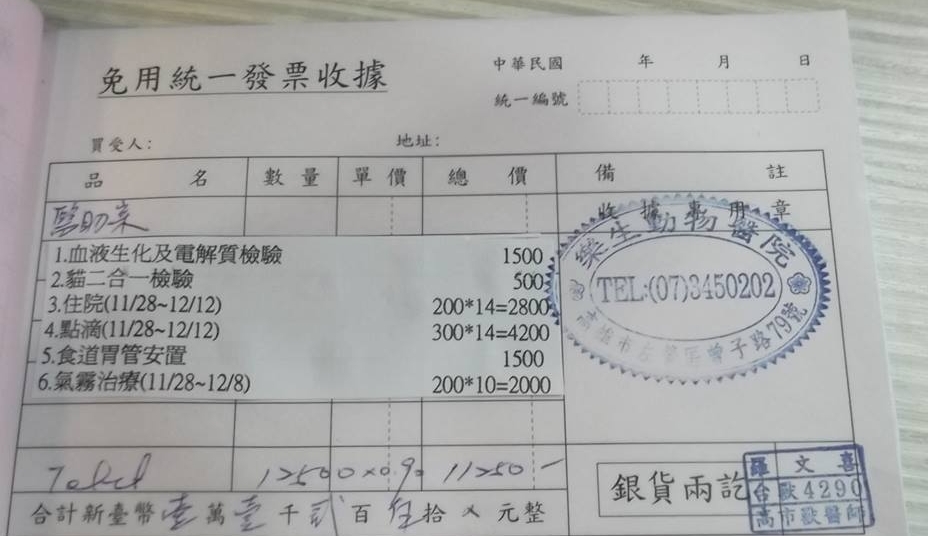 免用統一發票收據
中華民國 年 月 日
統一編號
買受人： 地址：
品名 數量 單價 總價 備註
1.血液生化及電解質檢驗 1500
2.貓二合一檢驗 500
3.住院(11/28~12/12) 200*14=2800
4.點滴(11/28~12/12) 300*14=4200
5.食道胃管安置 1500
6.氣霧治療(11/28~12/8) 200*10=2000
收據專用章
樂生動物醫院
TEL:(07)3450202
高雄市左營區曾子路79號
Total 12500x0.90 11250-
合計新臺幣壹萬壹千貳百伍拾 元整
銀貨兩訖
羅文喜
台獸4290
高市獸醫師